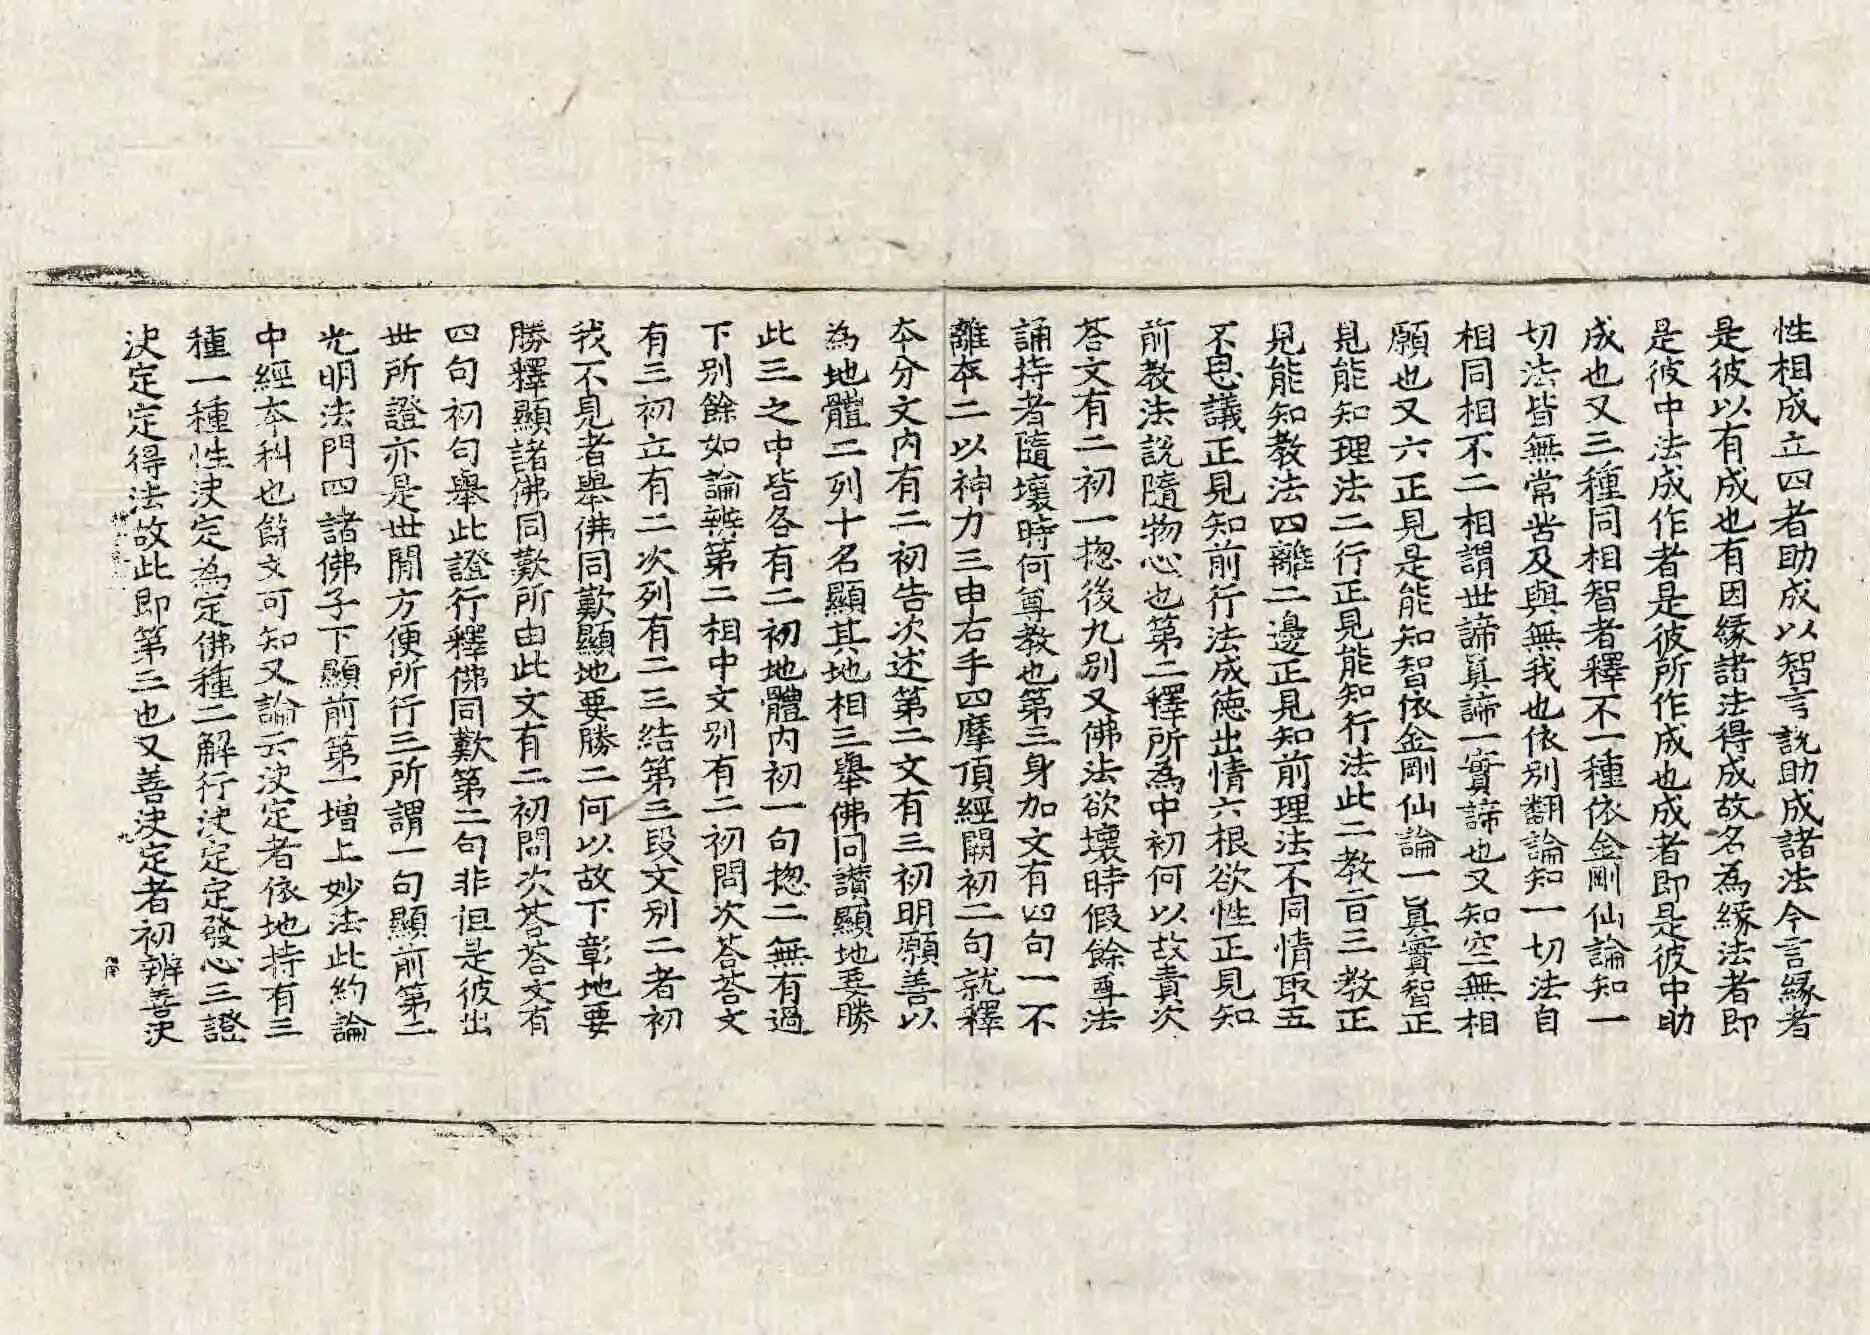 性相成立四者助成以智言說助成諸法今言縁者
是彼以有成也有因縁諸法得成故名為縁法者即
是彼中法成作者是彼所作成也成者即是彼中助
成也又三種同相智者釋不一種依金剛仙論知一
切法皆無常苦及與無我也依别翻論知一切法自
相同相不二相謂世諦眞諦一實諦也又知空無相
願也又六正見是能知智依金剛仙論一眞實智正
見能知理法二行正見能知行法此二教一百三教正
見能知教法四離二邊正見知前理法不同情取五
不思議正見知前行法成徳出情六根欲性正見知
前教法説隨物心也第二釋所為中初何以故責次
荅文有二初一揔後九别又佛法欲壞時假餘尊法
誦持者隨壞時何尊教也第三身加文有四句一不
離本二以神力三由右手四摩頂經闕初二句就釋
本分文内有二初告次述第二文有三初明願善以
為地體二列十名顯其地相三舉佛同讃顯地要勝
此三之中皆各有二初地體内初一句揔二無有過
下别餘如論辨第二相中文别有二初問次荅荅文
有三初立有二次列有二三結第三段文别二者初
我不見者舉佛同歎顯地要勝二何以故下彰地要
勝釋顯諸佛同歎所由此文有二初問次荅荅文有
四句初句舉此證行釋佛同歎第二句非但是彼出
世所證亦是世間方便所行三所謂一句顯前第二
光明法門四諸佛子下顯前第一增上妙法此約論
中經本科也餘文可知又論云決定者依地持有三
種一種性決定為定佛種二解行決定定發心三證
決定定得法故此即第三也又善決定者初辨善決